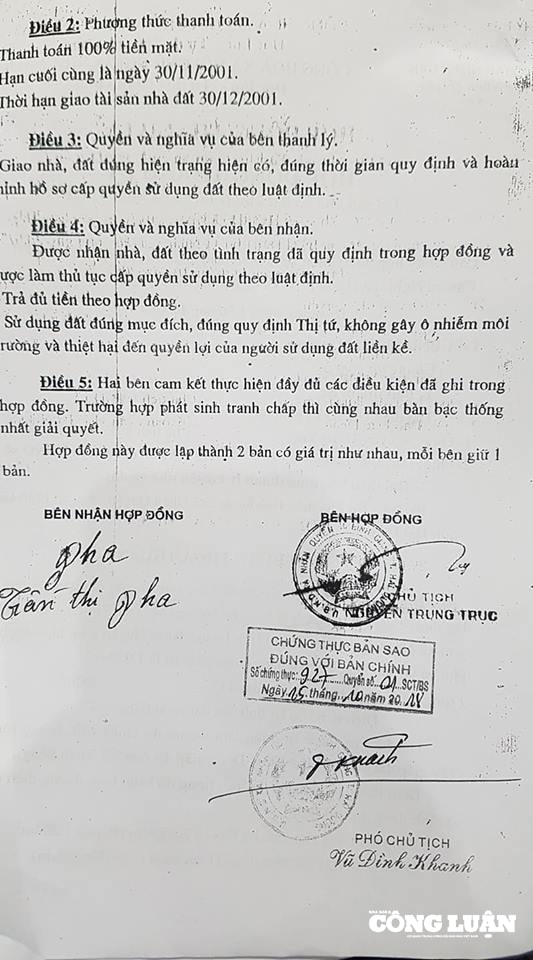 Điều 2: Phượng thức thanh toán.
Thanh toán 100% tiền mặt.
Hạn cuối cùng là ngày 30/11/2001.
Thời hạn giao tài sản nhà đất 30/12/2001.
Điều 3: Quyền và nghĩa vụ của bên thanh lý.
Giao nhà, đất đúng hiện trạng hiện có, đúng thời gian quy định và hoàn
hỉnh hồ sơ cấp quyền sử dụng đất theo luật định.
Điều 4: Quyền và nghĩa vụ của bên nhận.
Được nhận nhà, đất theo tình trạng đã quy định trong hợp đồng và
ược làm thủ tục cấp quyền sử dụng theo luật định.
Trả đủ tiền theo hợp đồng.
Sử dụng đất đúng mục đích, đúng quy định Thị tứ, không gây ô nhiễm môi
rường và thiệt hại đến quyền lợi của người sử dụng đất liền kề.
Điều 5: Hai bên cam kết thực hiện đầy đủ các điều kiện đã ghi trong
hợp đồng. Trường hợp phát sinh tranh chấp thì cùng nhau bàn bạc thống
nhất giải quyết.
Hợp đồng này được lập thành 2 bản có giá trị như nhau, mỗi bên giữ 1
bản.
BÊN NHẬN HỢP ĐỒNG
BÊN HỢP ĐỒNG
gha
Trần thị gha
CHỦ TỊCH
NGUYỄN TRUNG TRỤC
CHỨNG THỰC BẢN SAO
ĐÚNG VỚI BẢN CHÍNH
Số chứng thực: 927 Quyển số: 01 SCT/BS
Ngày 15 tháng 10 năm 2018
PHÓ CHỦ TỊCH
Vũ Đình Khanh
CÔNG LUẬN